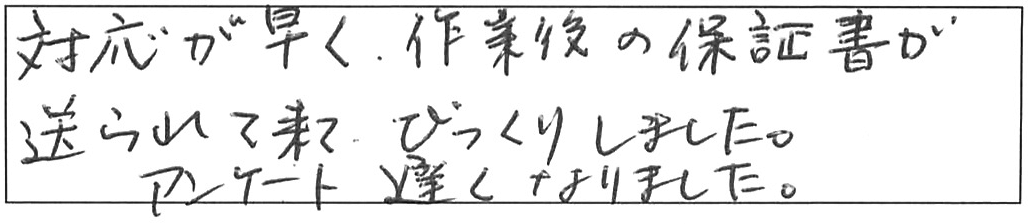 対応が早く、作業後の保証書が
送られて来て、びっくりしました。
アンケート遅くなりました。